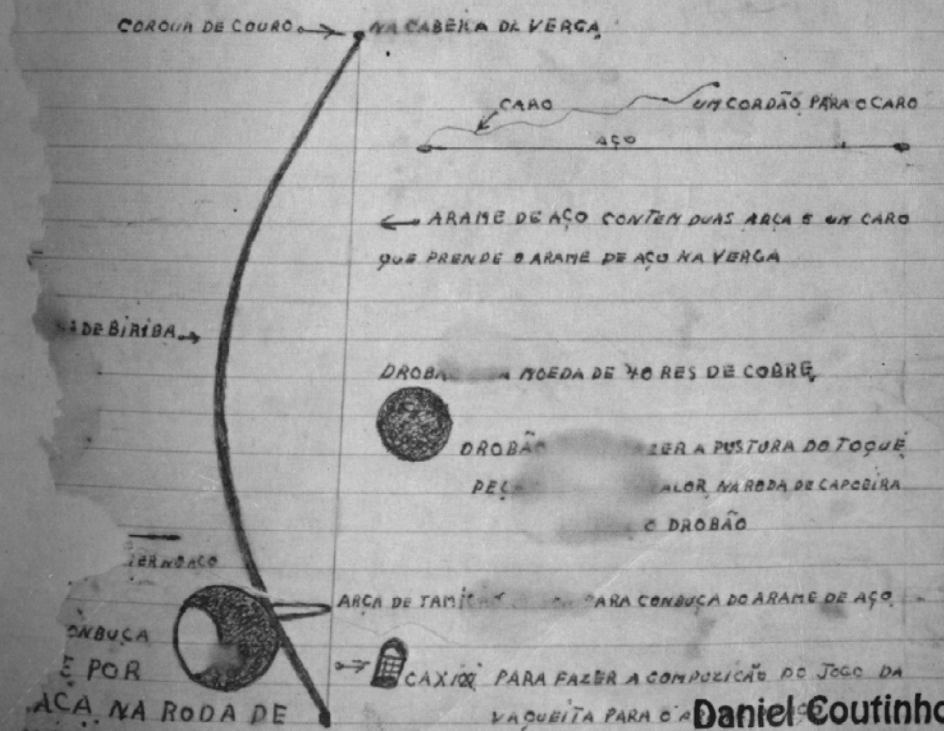 COROUA DE COURO NA CABEÇA DA VERGA
CARO UM CORDÃO PARA O CARO
AÇO
ARAME DE AÇO CONTEM DUAS ARÇA E UM CARO
QUE PRENDE O ARAME DE AÇO NA VERGA
DE BIRIBA
MOEDA DE 40 RES DE COBRE
DROBÃO A PUSTURA DO TOQUE
NA RODA DE CAPOEIRA
O DROBÃO
ARÇA DE CONBUÇA DO ARAME DE AÇO
E POR
CAXIXI PARA FAZER A COMPUZICÃO DO JOGO DA
NA RODA DE
VAQUEITA PARA O
Daniel Coutinho